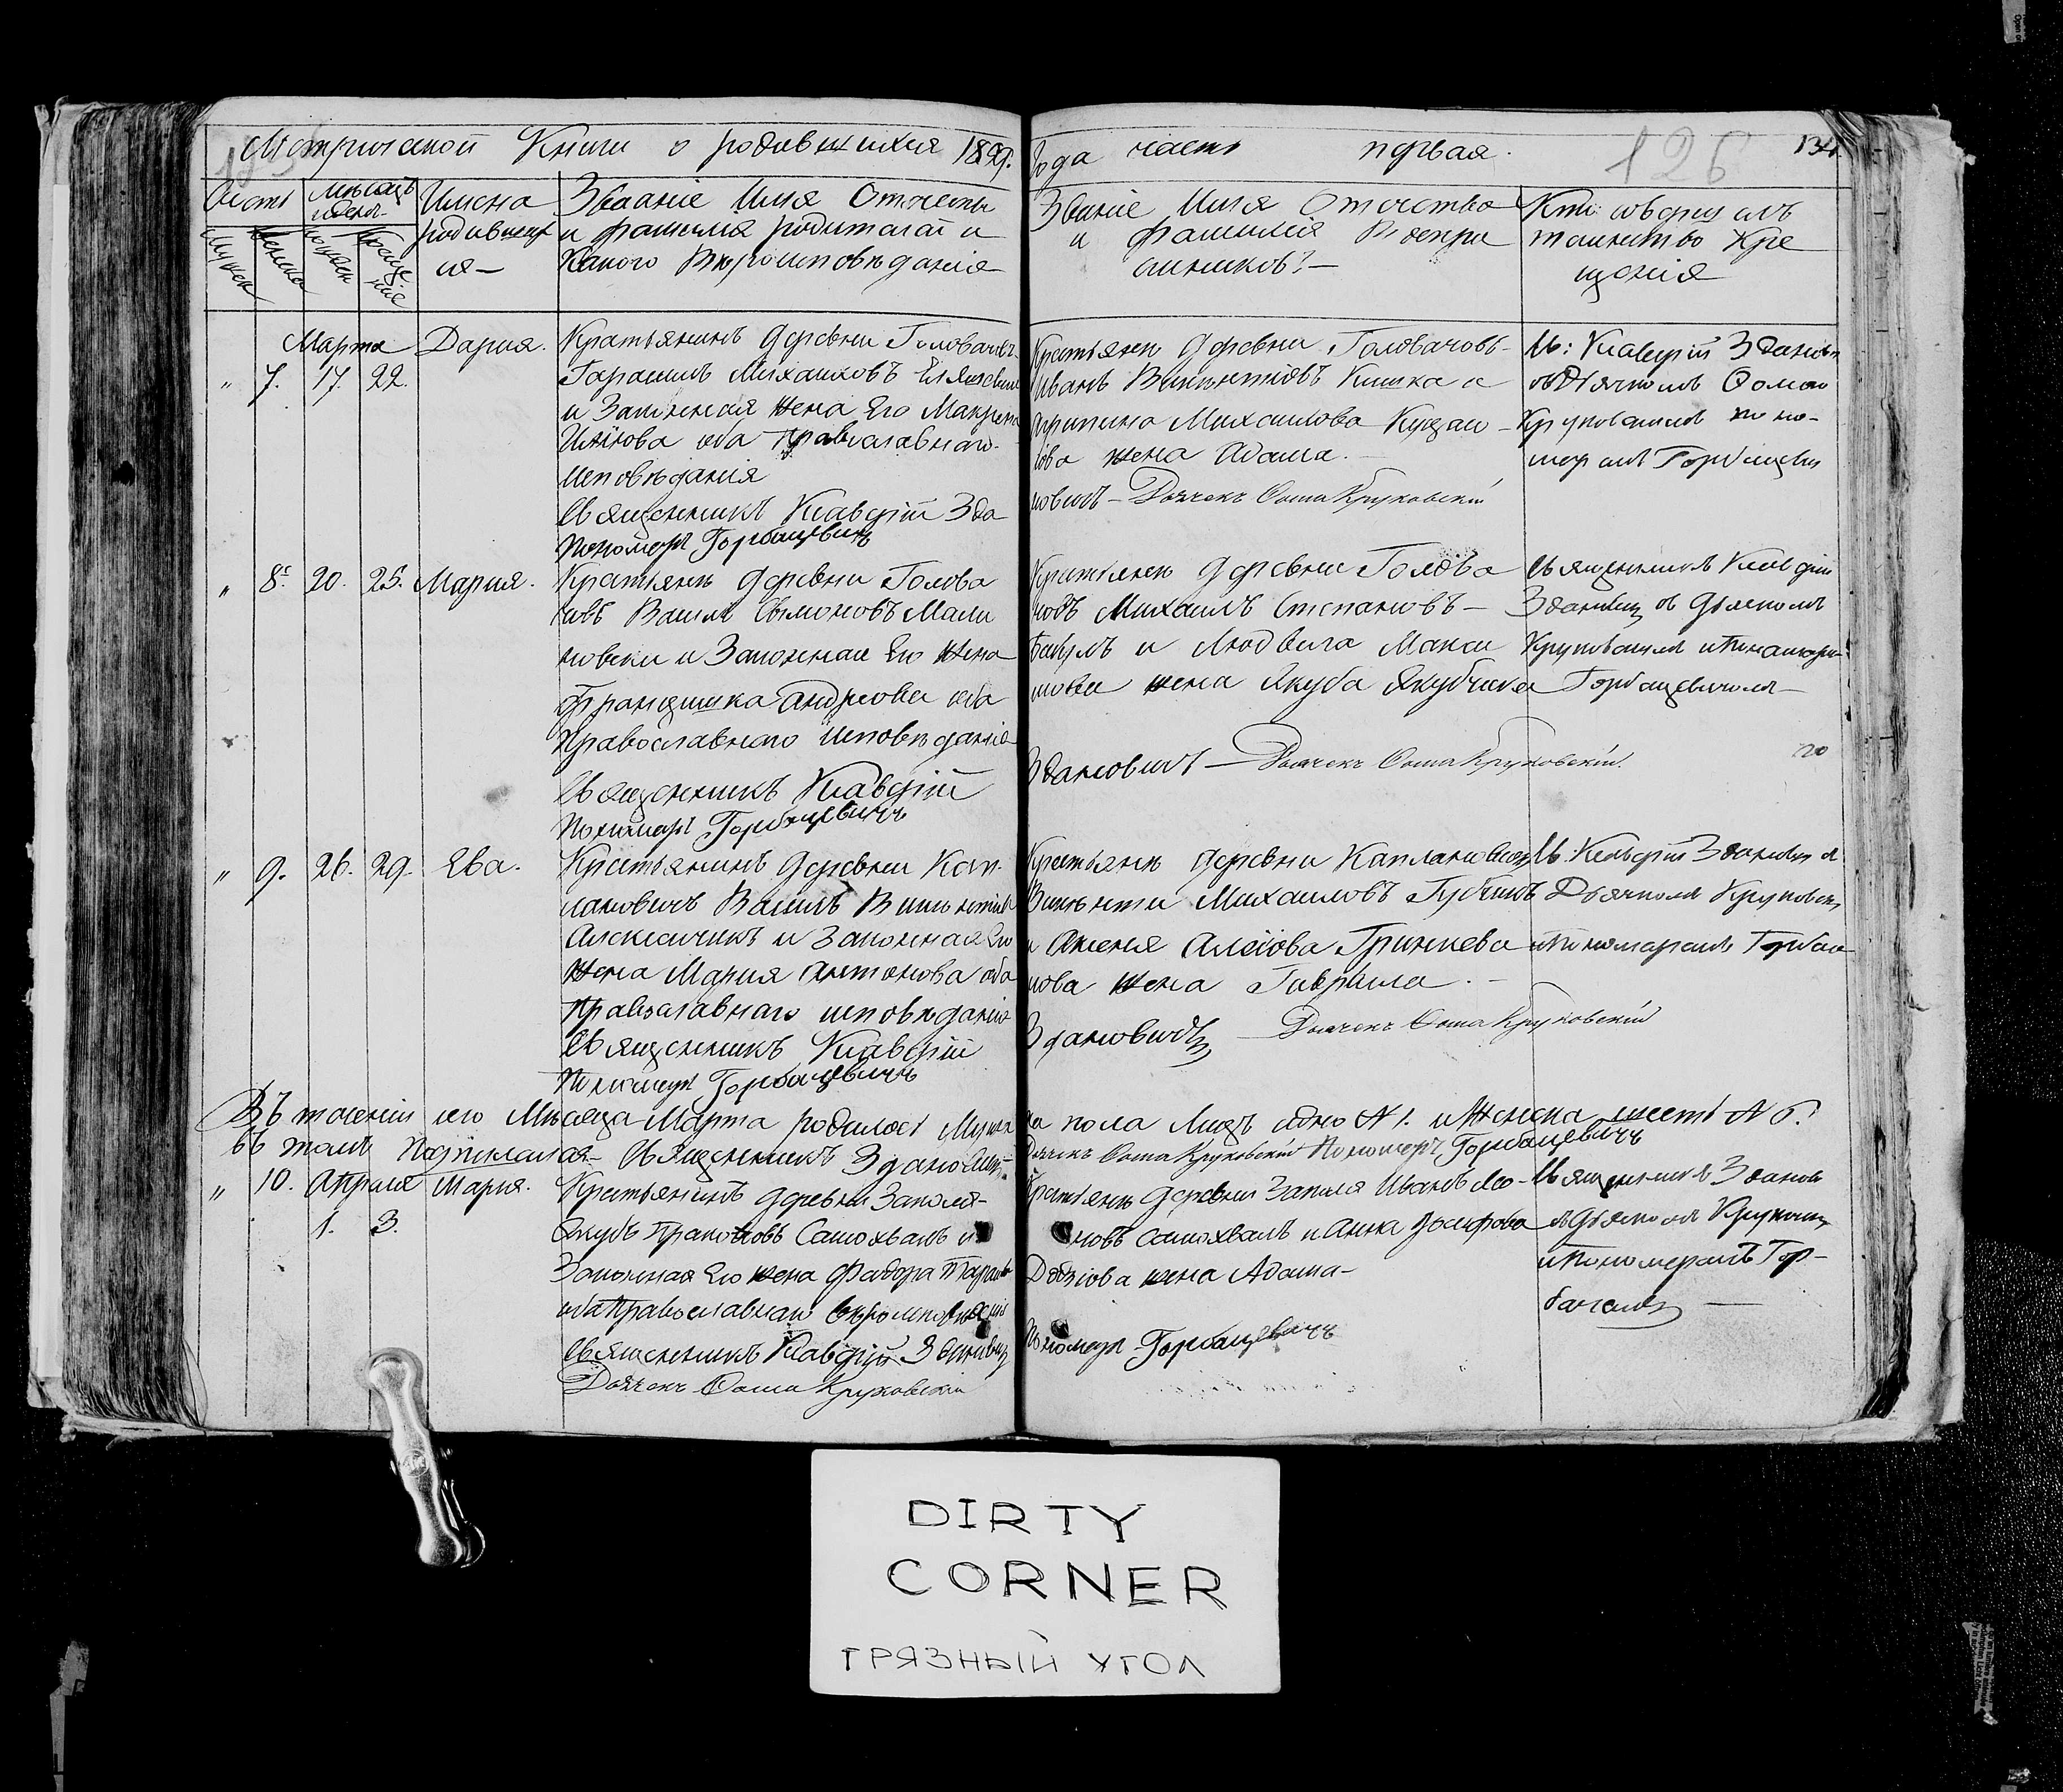 Метрической Книги о родившихся 18
Года часть первая.
126
134.
Счетъ
Мѣсяцъ
и день
Имена
родивших
ся
Званіе Имя Отчество
и фамилія родителей и
Какого Вѣроисповѣданія
Званіе Имя Отчество
и Фамилія Воспрі
емниковъ
Кто совершалъ
таинство Кре
щенія
Марта Дарія.
" 7. 17. 22.
Крестьянинъ деревни Головачовъ
Гарасимъ Михаиловъ
и Законная жена Его
оба Православнаго
исповѣданія
Священникъ Клавдій Зда
Пономарь Горбацевичъ
Крестьяне деревни Головачовъ
Иванъ Викентіовъ Кишка и
Агрипина Михаилова
жена Адама.
новичъ Дьячекъ Ѳома Круковскій
Св: Клавдій Здановичъ
съ Дьячкомъ Ѳомою
Круковскимъ и поно-
маремъ Горбацевич
" 8. 20. 25. Марія.
Крестьянинъ деревни Голова
човъ Василь Сымоновъ Мали
новски и Законная Его жена
Францишка Андреова оба
Православнаго исповѣданія
Священникъ Клавдій
Пономарь Горбацевичъ
Крестьяне деревни Голова
човъ Михаилъ Степановъ
и Людвига Макси
мова жена Якуба Якубчика
Здановичъ Дьячекъ Ѳома Круковскій.
Священникъ Клавдій
Здановичъ съ Дьячкомъ
Круковскимъ и Пономаре
Горбацевичомъ
" 9. 26. 29. Ева.
Крестьянинъ деревни Кап
лановичъ Василь Викентіовъ
Алексейчикъ и Законная Его
жена Марія Антонова оба
Православнаго исповѣданія
Священникъ Клавдій
Пономарь Горбацевичъ
Крестьяне деревни Каплановичъ
Викенти Михаиловъ Губчикъ
и Аксеня Алеіова
жена Гаврила.
Здановичъ Дьячекъ Ѳома Круковскій
Св: Клавдій Здановичъ съ
Дьячкомъ Круковск
и Пономаремъ Горбац
Въ теченіи сего Мѣсяца Марта родилось Мужск
ка пола Лицъ одно N 1. и Женска шесть N 6.
въ томъ Подписался Священникъ Здановичъ
Дьячекъ Ѳома Круковскій Пономарь Горбацевичъ
" 10. Апреля Марія.
1. 3.
Крестьянинъ деревни Заполя
Якубъ Самохвалъ и
Законная Его жена Фадора
оба Православнаго вѣроисповѣданія
Священникъ Клавдій Здановичъ
Дьячекъ Ѳома Круковскій
Крестьяне деревни Заполя Иванъ
новъ Самохвалъ и Анна
жена Адама
Пономарь Горбацевичъ
Священникъ Здановъ
съ Дьячкомъ Круковск
и Пономеремъ Гор-
DIRTY
CORNER
ГРЯЗНЫЙ УГОЛ